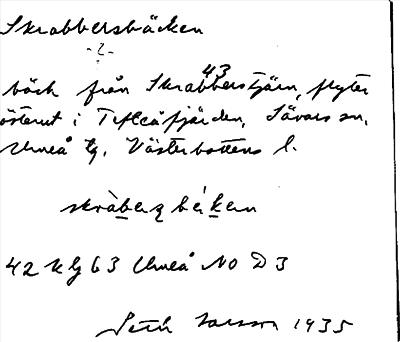 Skrabbersbäcken
- ? -
43
bäck från Skrabberstjärn, flyter
österut i Täfteåfjärden, Sävars sn,
Umeå tg, Västerbottens l.
skràberz békan
42 Kg 63 Umeå NO D3
Seth Larsson 1935